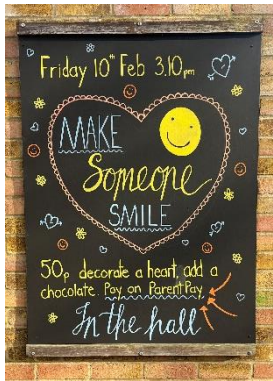 Friday 10th Feb 3.10pm
MAKE
Someone
SMILE
50p decorate a heart, add a
chocolate. Pay on ParentPay
In the hall